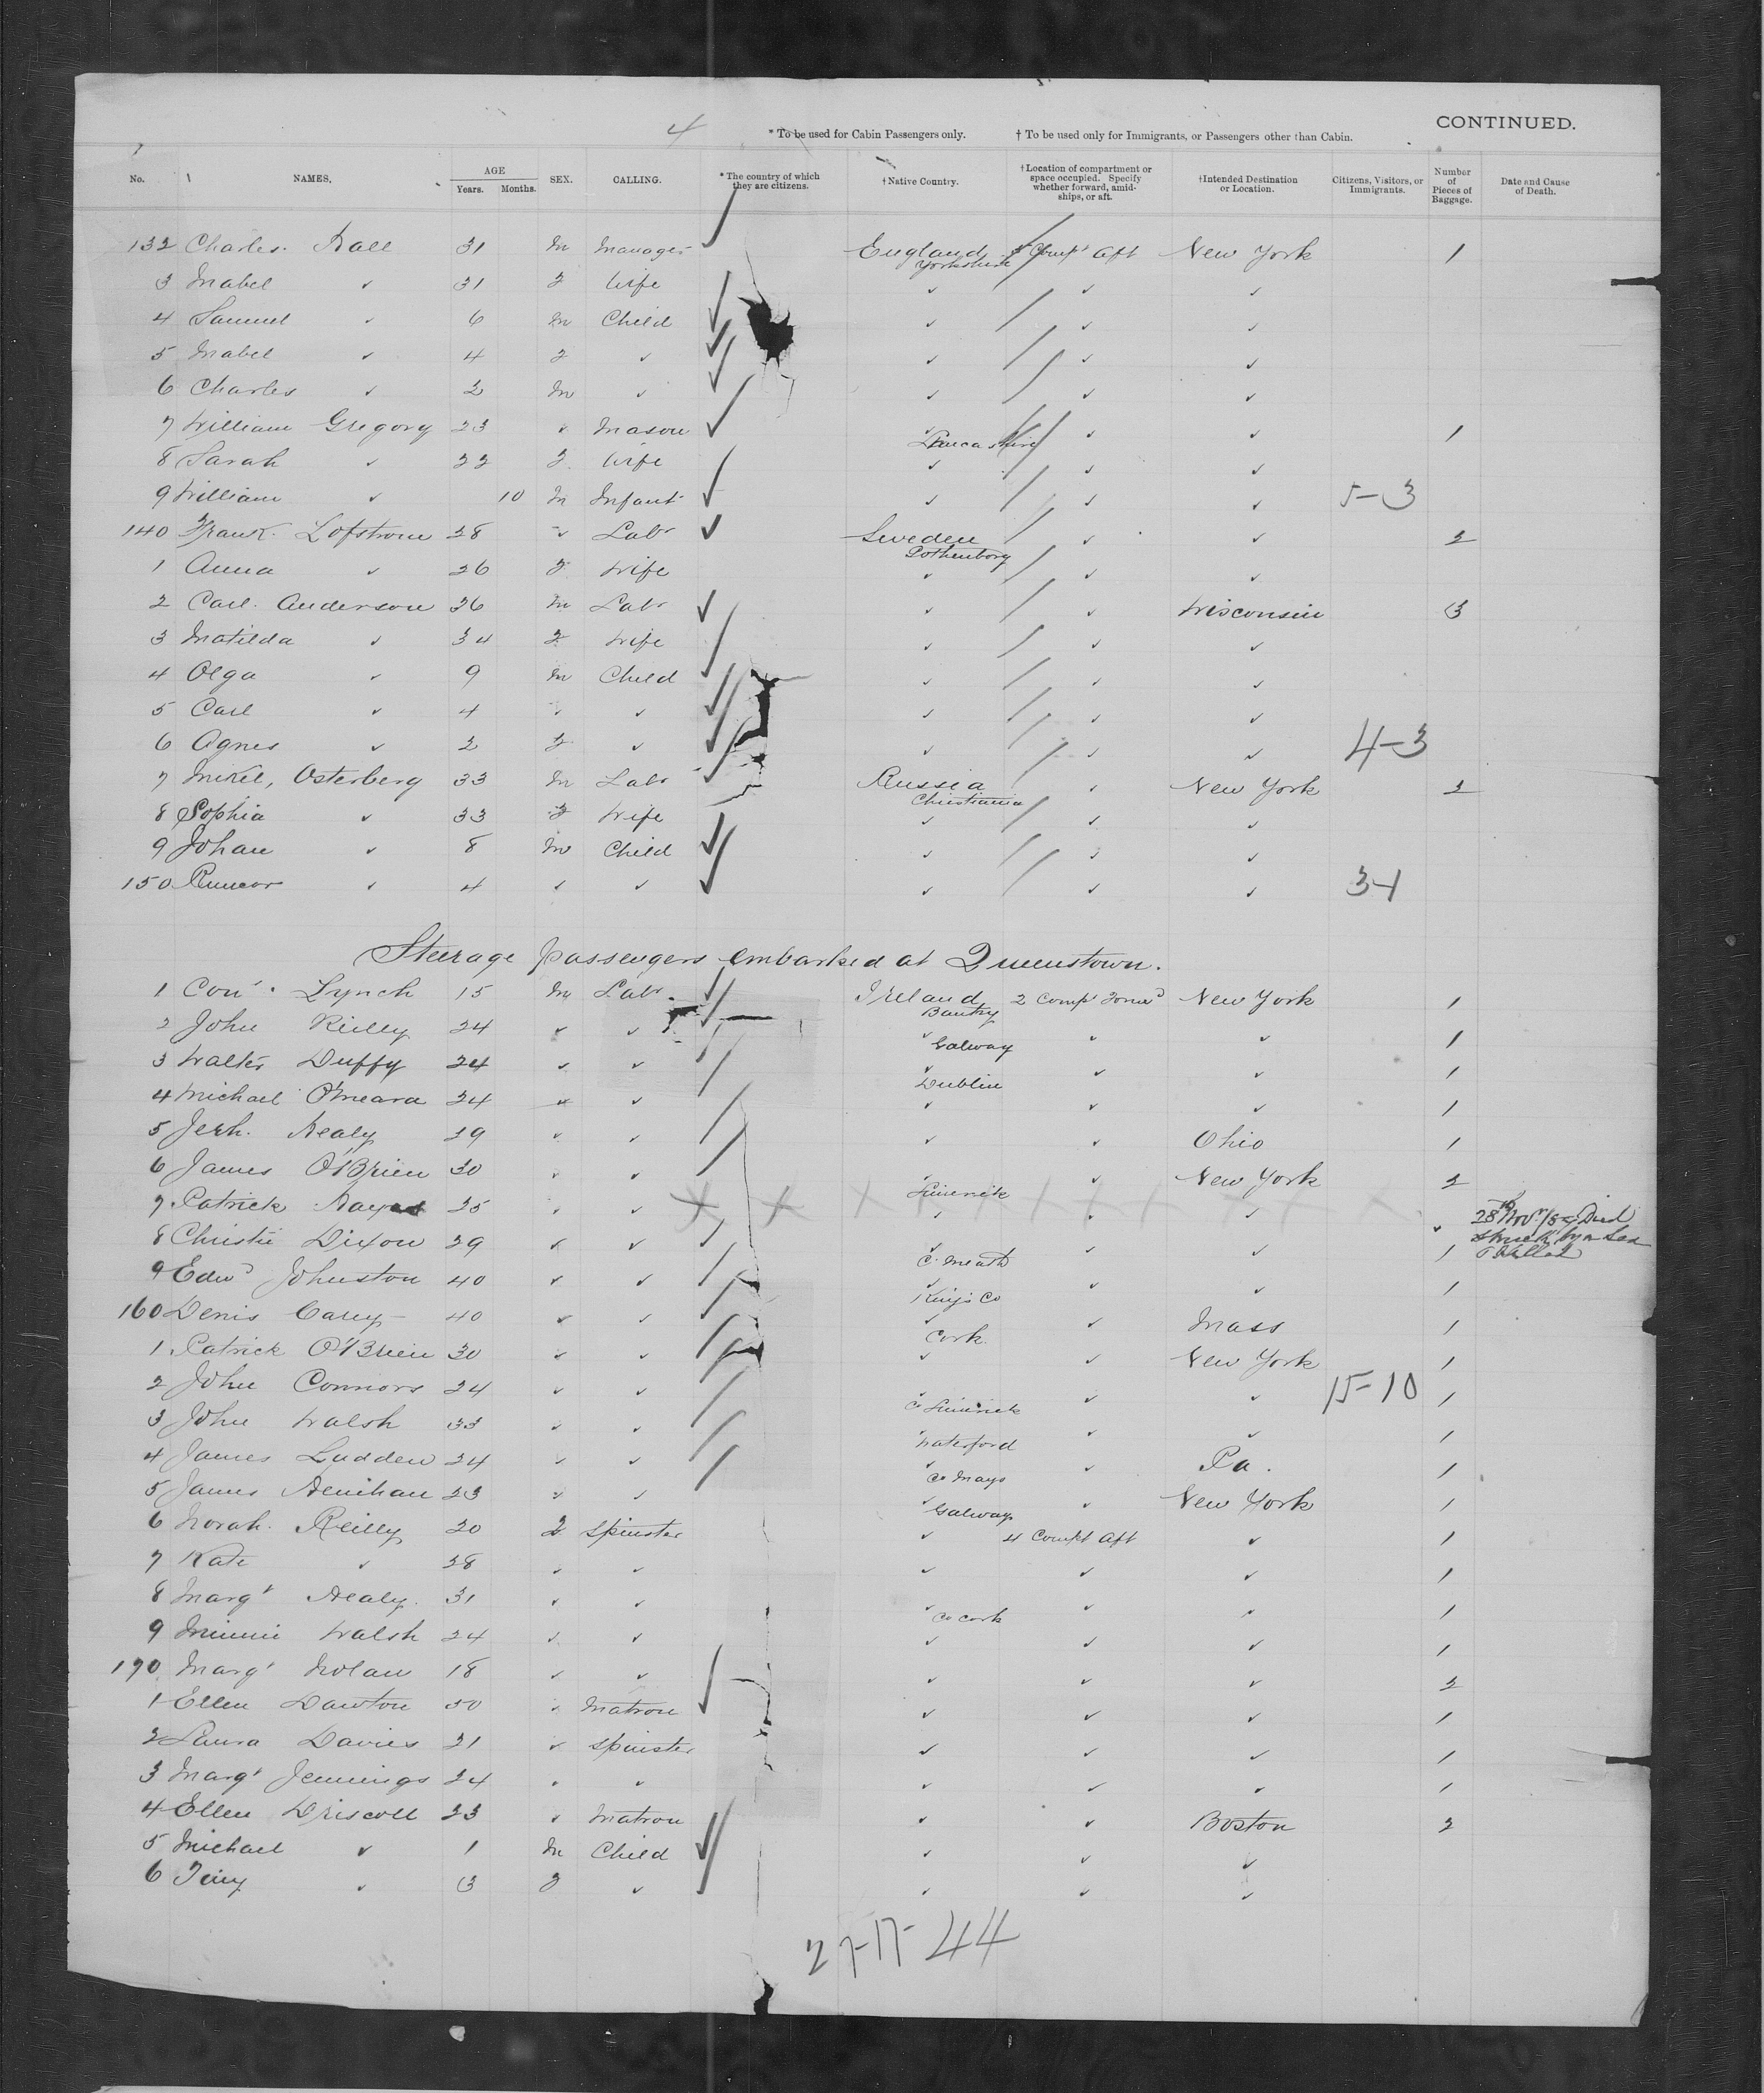 4
* To be used for Cabin Passengers only. † To be used only for Immigrants, or Passengers other than Cabin. CONTINUED.
No. NAMES. AGE Years. Months. SEX. CALLING. * The country of which they are citizens. † Native Country. † Location of compartment or space occupied. Specify whether forward, amidships, or aft. † Intended Destination or Location. Citizens, Visitors, or Immigrants. Number of Pieces of Baggage. Date and Cause of Death.
132 Charles 31 M Manager England Yorkshire Compt Aft New York 1
3 Mabel ✓ 31 F Wife ✓ ✓ ✓
4 Samuel ✓ 6 M Child ✓ ✓ ✓
5 Mabel ✓ 4 F ✓ ✓ ✓ ✓
6 Charles ✓ 2 M ✓ ✓ ✓ ✓
7 William Gregory 23 ✓ Mason ✓ Lancashire ✓ ✓ 1
8 Sarah ✓ 22 F Wife ✓ ✓ ✓
9 William ✓ 10 M Infant ✓ ✓ ✓ 5-3
140 Frank Lofstrom 28 ✓ Labr Sweden Gothenborg ✓ ✓ 2
1 Anna ✓ 26 F Wife ✓ ✓ ✓
2 Carl Anderson 36 M Labr ✓ ✓ Wisconsin 3
3 Matilda ✓ 34 F Wife ✓ ✓ ✓
4 Olga ✓ 9 M Child ✓ ✓ ✓
5 Carl ✓ 4 ✓ ✓ ✓ ✓ ✓
6 Agnes ✓ 2 F ✓ ✓ ✓ ✓ 4-3
7 Mikel, Osterberg 33 M Labr Russia Christiania ✓ New York 2
8 Sophia ✓ 33 F Wife ✓ ✓ ✓
9 Johan ✓ 8 M Child ✓ ✓ ✓
150 ✓ 4 ✓ ✓ ✓ ✓ ✓ 3-1
Steerage passengers embarked at Queenstown.
1 Con Lynch 15 M Labr Ireland Bantry 2 Compt Forwd New York 1
2 John Reilly 24 ✓ ✓ ✓ Galway ✓ ✓ 1
3 Walter Duffy 24 ✓ ✓ ✓ Dublin ✓ ✓ 1
4 Michael O'Meara 24 ✓ ✓ ✓ ✓ ✓ 1
5 Jerh. Healy 29 ✓ ✓ ✓ ✓ Ohio 1
6 James O'Brien 30 ✓ ✓ Limerick ✓ New York 2
7 Patrick Hayes 25 ✓ ✓ ✓ ✓ ✓ ✓ 28th Novr Died struck by a Sea & Killed
8 Christie Dixon 29 ✓ ✓ ✓ C. Meath ✓ ✓ 1
9 Edwd Johnston 40 ✓ ✓ ✓ Kings Co ✓ ✓ 1
160 Denis Carey 40 ✓ ✓ ✓ Cork ✓ Mass 1
1 Patrick O'Brien 30 ✓ ✓ ✓ ✓ New York 1
2 John Connors 24 ✓ ✓ ✓ Co Limerick ✓ ✓ 15-10 1
3 John Walsh 33 ✓ ✓ ✓ Waterford ✓ ✓ 1
4 James Ludden 24 ✓ ✓ ✓ Co Mayo ✓ Pa. 1
5 James Henihan 23 ✓ ✓ ✓ Galway ✓ New York 1
6 Norah Reilly 20 F Spinster ✓ 4 Compt Aft ✓ 1
7 Kate ✓ 28 ✓ ✓ ✓ ✓ ✓ 1
8 Margt Healy 31 ✓ ✓ ✓ Co Cork ✓ ✓ 1
9 Minnie Walsh 24 ✓ ✓ ✓ ✓ ✓ 1
170 Margt Nolan 18 ✓ ✓ ✓ ✓ ✓ 2
1 Ellen Dawton 50 ✓ Matron ✓ ✓ ✓ 1
2 Laura Davies 21 ✓ Spinster ✓ ✓ ✓ 1
3 Margt Jennings 24 ✓ ✓ ✓ ✓ ✓ 1
4 Ellen Driscoll 23 ✓ Matron ✓ ✓ Boston 2
5 Michael ✓ 1 M Child ✓ ✓ ✓
6 ✓ 3 F ✓ ✓ ✓ ✓
27-17-44